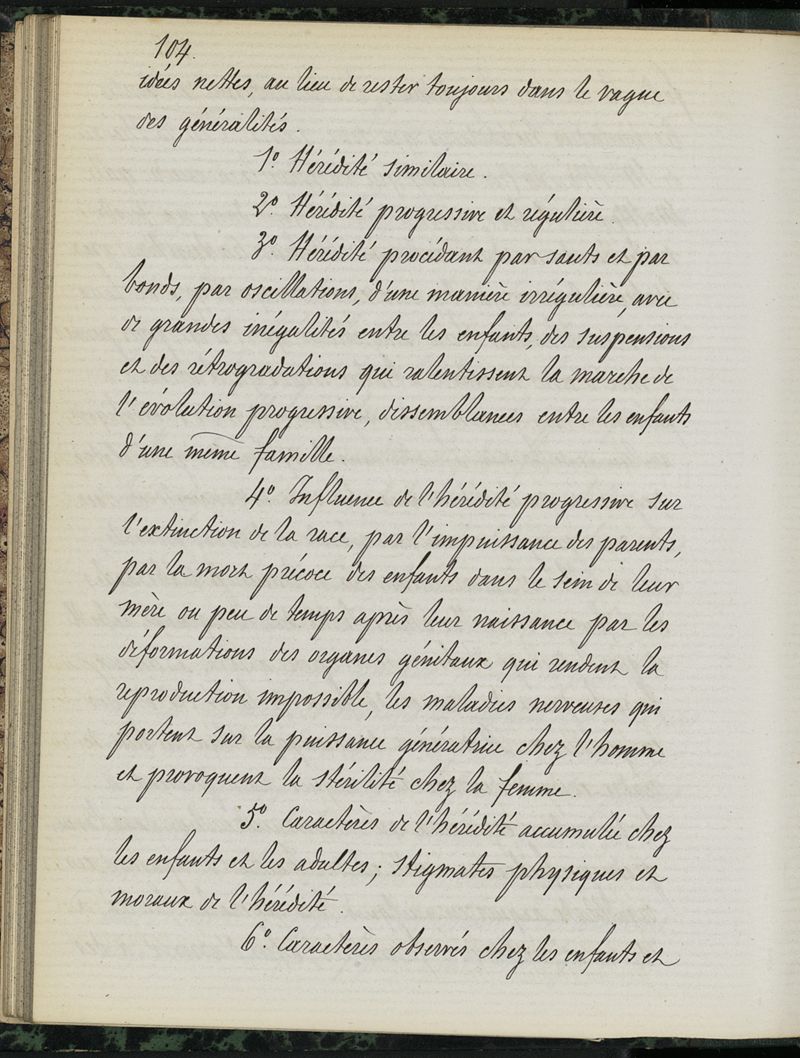 104.
idées nettes, au lieu de rester toujours dans le vague
des généralités.
1º. Hérédité similaire.
2º. Hérédité progressive et régulière.
3º. Hérédité procédant par sauts et par
bonds, par oscillations, d'une manière irrégulière, avec
de grandes inégalités entre les enfants, des suspensions
et des rétrogradations qui ralentissent la marche de
l'évolution progressive, dissemblances entre les enfants
d'une même famille.
4º. Influence de l'hérédité progressive sur
l'extinction de la race, par l'impuissance des parents,
par la mort précoce des enfants dans le sein de leur
mère ou peu de temps après leur naissance par les
déformations des organes génitaux qui rendent la
reproduction impossible, les maladies nerveuses qui
portent sur la puissance génératrice chez l'homme
et provoquent la stérilité chez la femme.
5º. Caractères de l'hérédité accumulée chez
les enfants et les adultes; stigmates physiques et
moraux de l'hérédité.
6º. Caractères observés chez les enfants et